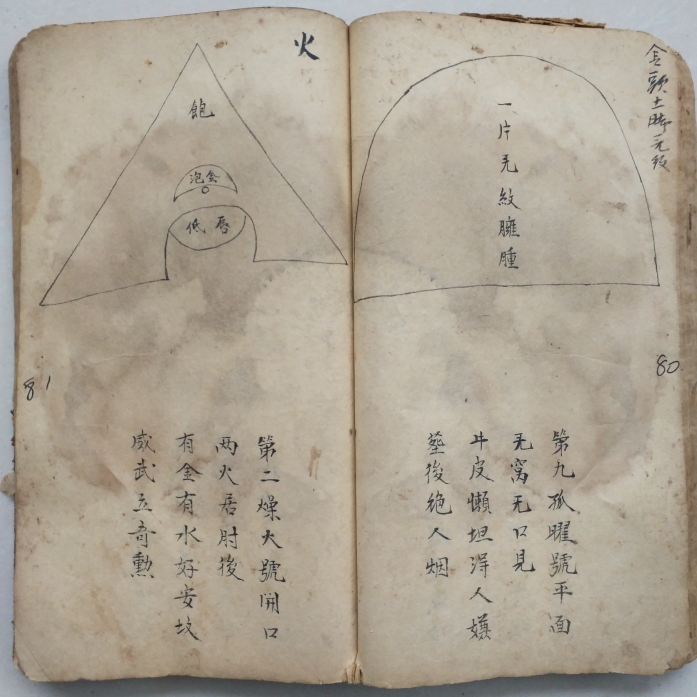 金頭土脚无紋
一片无紋臃腫
80
第九孤曜號平面
无窩无口見
牛皮懶坦淂人嫌
塟後絶人烟
火
飽
泡金
低唇
81
第二燥火號開口
两火居肘後
有金有水好安坟
威武立奇勲